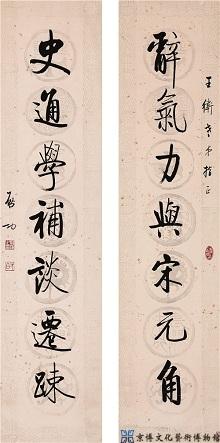 王衛老弟指正
辭氣力與宋元角
史通學補談遷踈
启功
京博文化藝術博物館